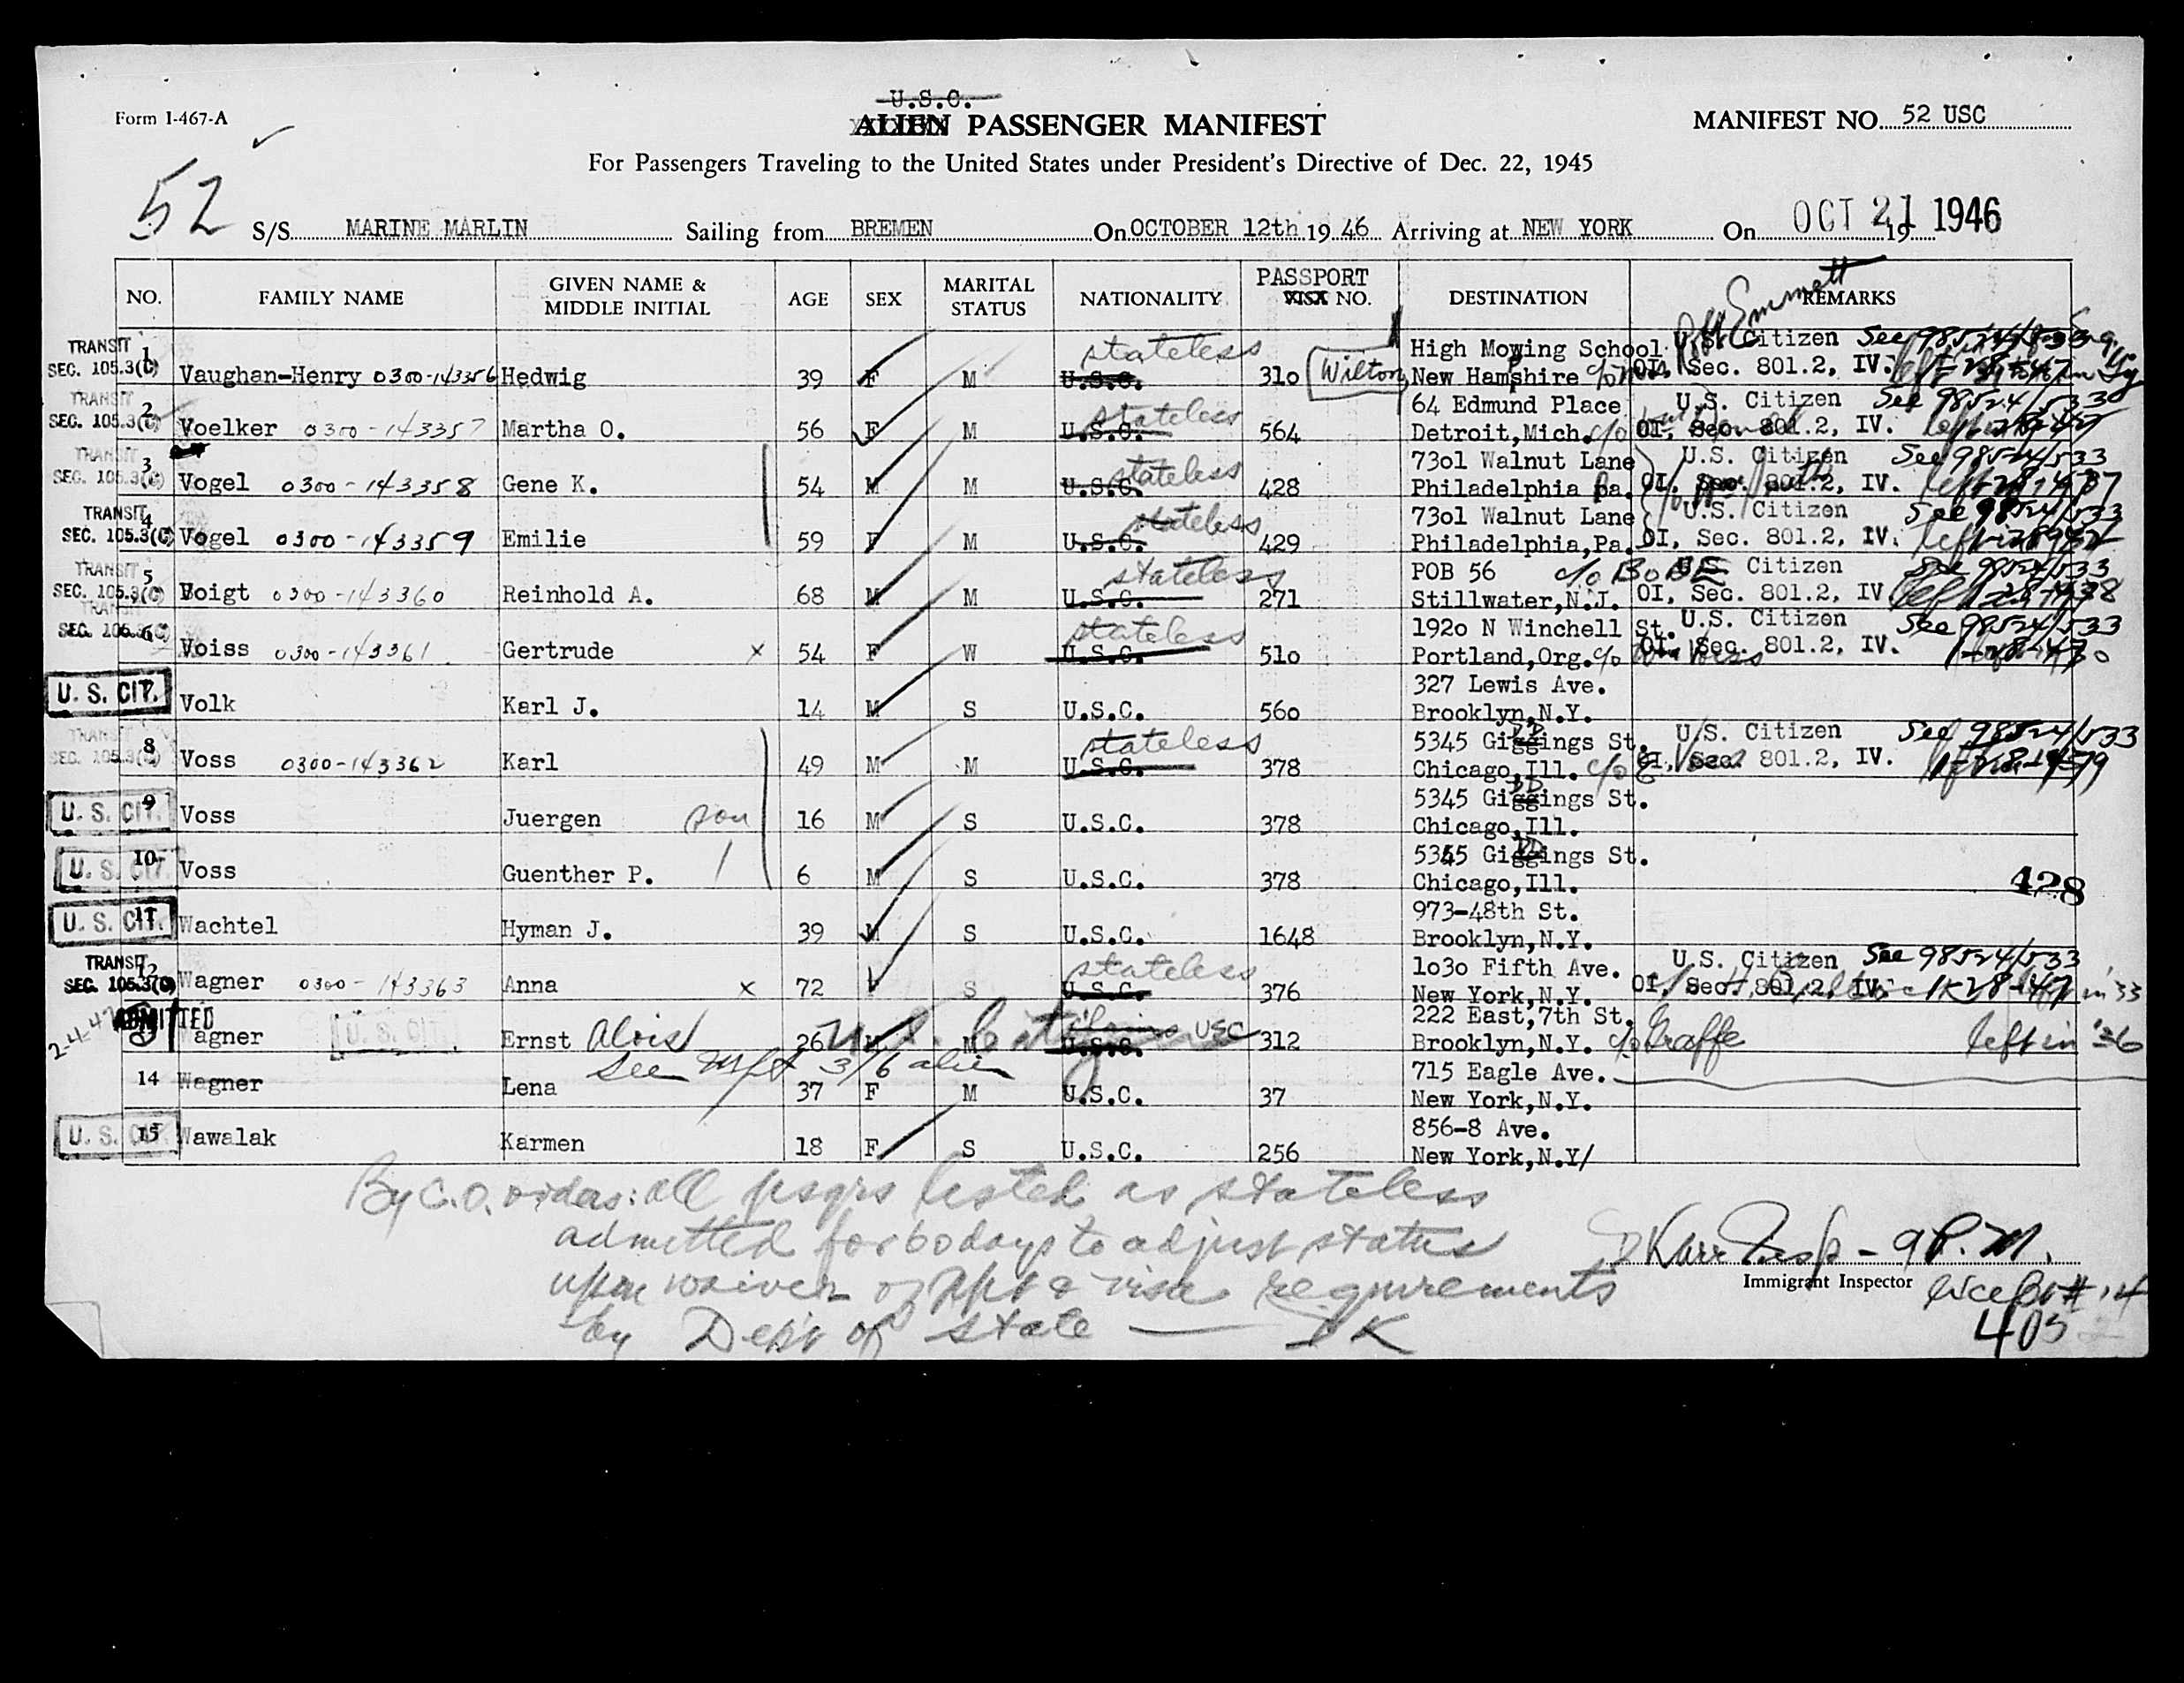 Form I-467-A
U.S.C.
ALIEN PASSENGER MANIFEST
MANIFEST NO. 52 USC
For Passengers Traveling to the United States under President's Directive of Dec. 22, 1945
52
S/S MARINE MARLIN Sailing from BREMEN On OCTOBER 12th 19 46 Arriving at NEW YORK On OCT 21 19 1946
NO. FAMILY NAME GIVEN NAME & MIDDLE INITIAL AGE SEX MARITAL STATUS NATIONALITY PASSPORT VISA NO. DESTINATION REMARKS
Emmett
TRANSIT stateless High Mowing School U.S. Citizen See 98524/533
SEC. 105.3(C) 1 Vaughan-Henry 0300-143356 Hedwig 39 F M U.S.C. 310 Wilton New Hampshire c/o OI, Sec. 801.2, IV. 1-28-47
TRANSIT stateless 64 Edmund Place U.S. Citizen See 98524/533
SEC. 105.3(C) 2 Voelker 0300-143357 Martha O. 56 F M U.S.C. 564 Detroit,Mich. c/o OI, Sec. 801.2, IV. 1-28-47
TRANSIT stateless 7301 Walnut Lane U.S. Citizen See 98524/533
SEC. 105.3(C) 3 Vogel 0300-143358 Gene K. 54 M M U.S.C. 428 Philadelphia pa. OI, Sec. 801.2, IV. 1-28-47
TRANSIT stateless 7301 Walnut Lane U.S. Citizen See 98524/533
SEC. 105.3(C) 4 Vogel 0300-143359 Emilie 59 F M U.S.C. 429 Philadelphia,Pa. OI, Sec. 801.2, IV. left in
TRANSIT stateless POB 56 c/o U.S. Citizen See 98524/533
SEC. 105.3(C) 5 Voigt 0300-143360 Reinhold A. 68 M M U.S.C. 271 Stillwater,N.J. OI, Sec. 801.2, IV
TRANSIT stateless 1920 N Winchell St. U.S. Citizen See 98524/533
SEC. 105.3(C) 6 Voiss 0300-143361 Gertrude x 54 F W U.S.C. 510 Portland,Org. c/o Voiss OI, Sec. 801.2, IV. 1-28-47
327 Lewis Ave.
U. S. CIT. 7 Volk Karl J. 14 M S U.S.C. 560 Brooklyn,N.Y.
TRANSIT stateless 5345 Giggings St. DD U.S. Citizen See 98524/533
SEC. 105.3(C) 8 Voss 0300-143362 Karl 49 M M U.S.C. 378 Chicago,Ill. c/o E. Voss OI, Sec. 801.2, IV. 1-28-47
5345 Giggings St. DD
U. S. CIT. 9 Voss Juergen son 16 M S U.S.C. 378 Chicago,Ill.
5345 Giggings St. DD
U. S. CIT. 10 Voss Guenther P. 6 M S U.S.C. 378 Chicago,Ill. 428
973-48th St.
U. S. CIT. 11 Wachtel Hyman J. 39 M S U.S.C. 1648 Brooklyn,N.Y.
TRANSIT stateless 1030 Fifth Ave. U.S. Citizen See 98524/533
SEC. 105.3(C) 12 Wagner 0300-143363 Anna x 72 F S U.S.C. 376 New York,N.Y. OI, Sec. 801.2, IV. 1-28-47 in '33
ADMITTED 222 East,7th St.
2-4-47 13 Wagner U.S. CIT. Ernst Alois 26 M M U.S.C. USC 312 Brooklyn,N.Y. c/o Graffe left in '36
see mfst 3/6 alien 715 Eagle Ave.
14 Wagner Lena 37 F M U.S.C. 37 New York,N.Y.
856-8 Ave.
U. S. CIT. 15 Wawalak Karmen 18 F S U.S.C. 256 New York,N.Y/
By C.O. orders: all psgrs listed as stateless
admitted for 60 days to adjust status
upon waiver of ppt & visa requirements
by Dep't of State — IK
Karr Insp - 9 P.M.
Immigrant Inspector
405